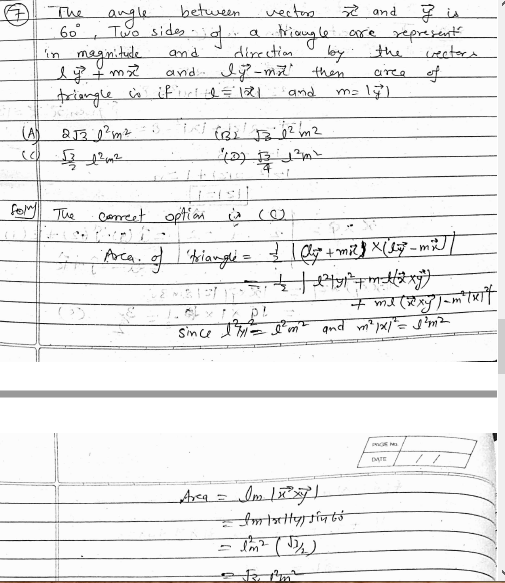 7 The angle between vectors x⃗ and y⃗ is
60°, Two sides of a triangle are represent
in magnitude and direction by the vectors
l y⃗ + m x⃗ and l y⃗ - m x⃗ then area of
triangle is if l = |x⃗| and m = |y⃗|
(A) 2√3 l²m² (B) √3 l²m²
(C) √3/2 l²m² (D) √3/4 l²m²
Soln The correct option is (C)
Area of triangle = 1/2 |(l y⃗ + m x⃗) × (l y⃗ - m x⃗)|
= 1/2 | l²|y|² + ml(x⃗ × y⃗)
+ ml (x⃗ × y⃗) - m²|x|²|
since l²|y|² = l²m² and m²|x|² = l²m²
PAGE No
DATE / /
Area = lm |x⃗ × y⃗|
= lm |x||y| sin 60
= l²m² (√3/2)
= √3 l²m²